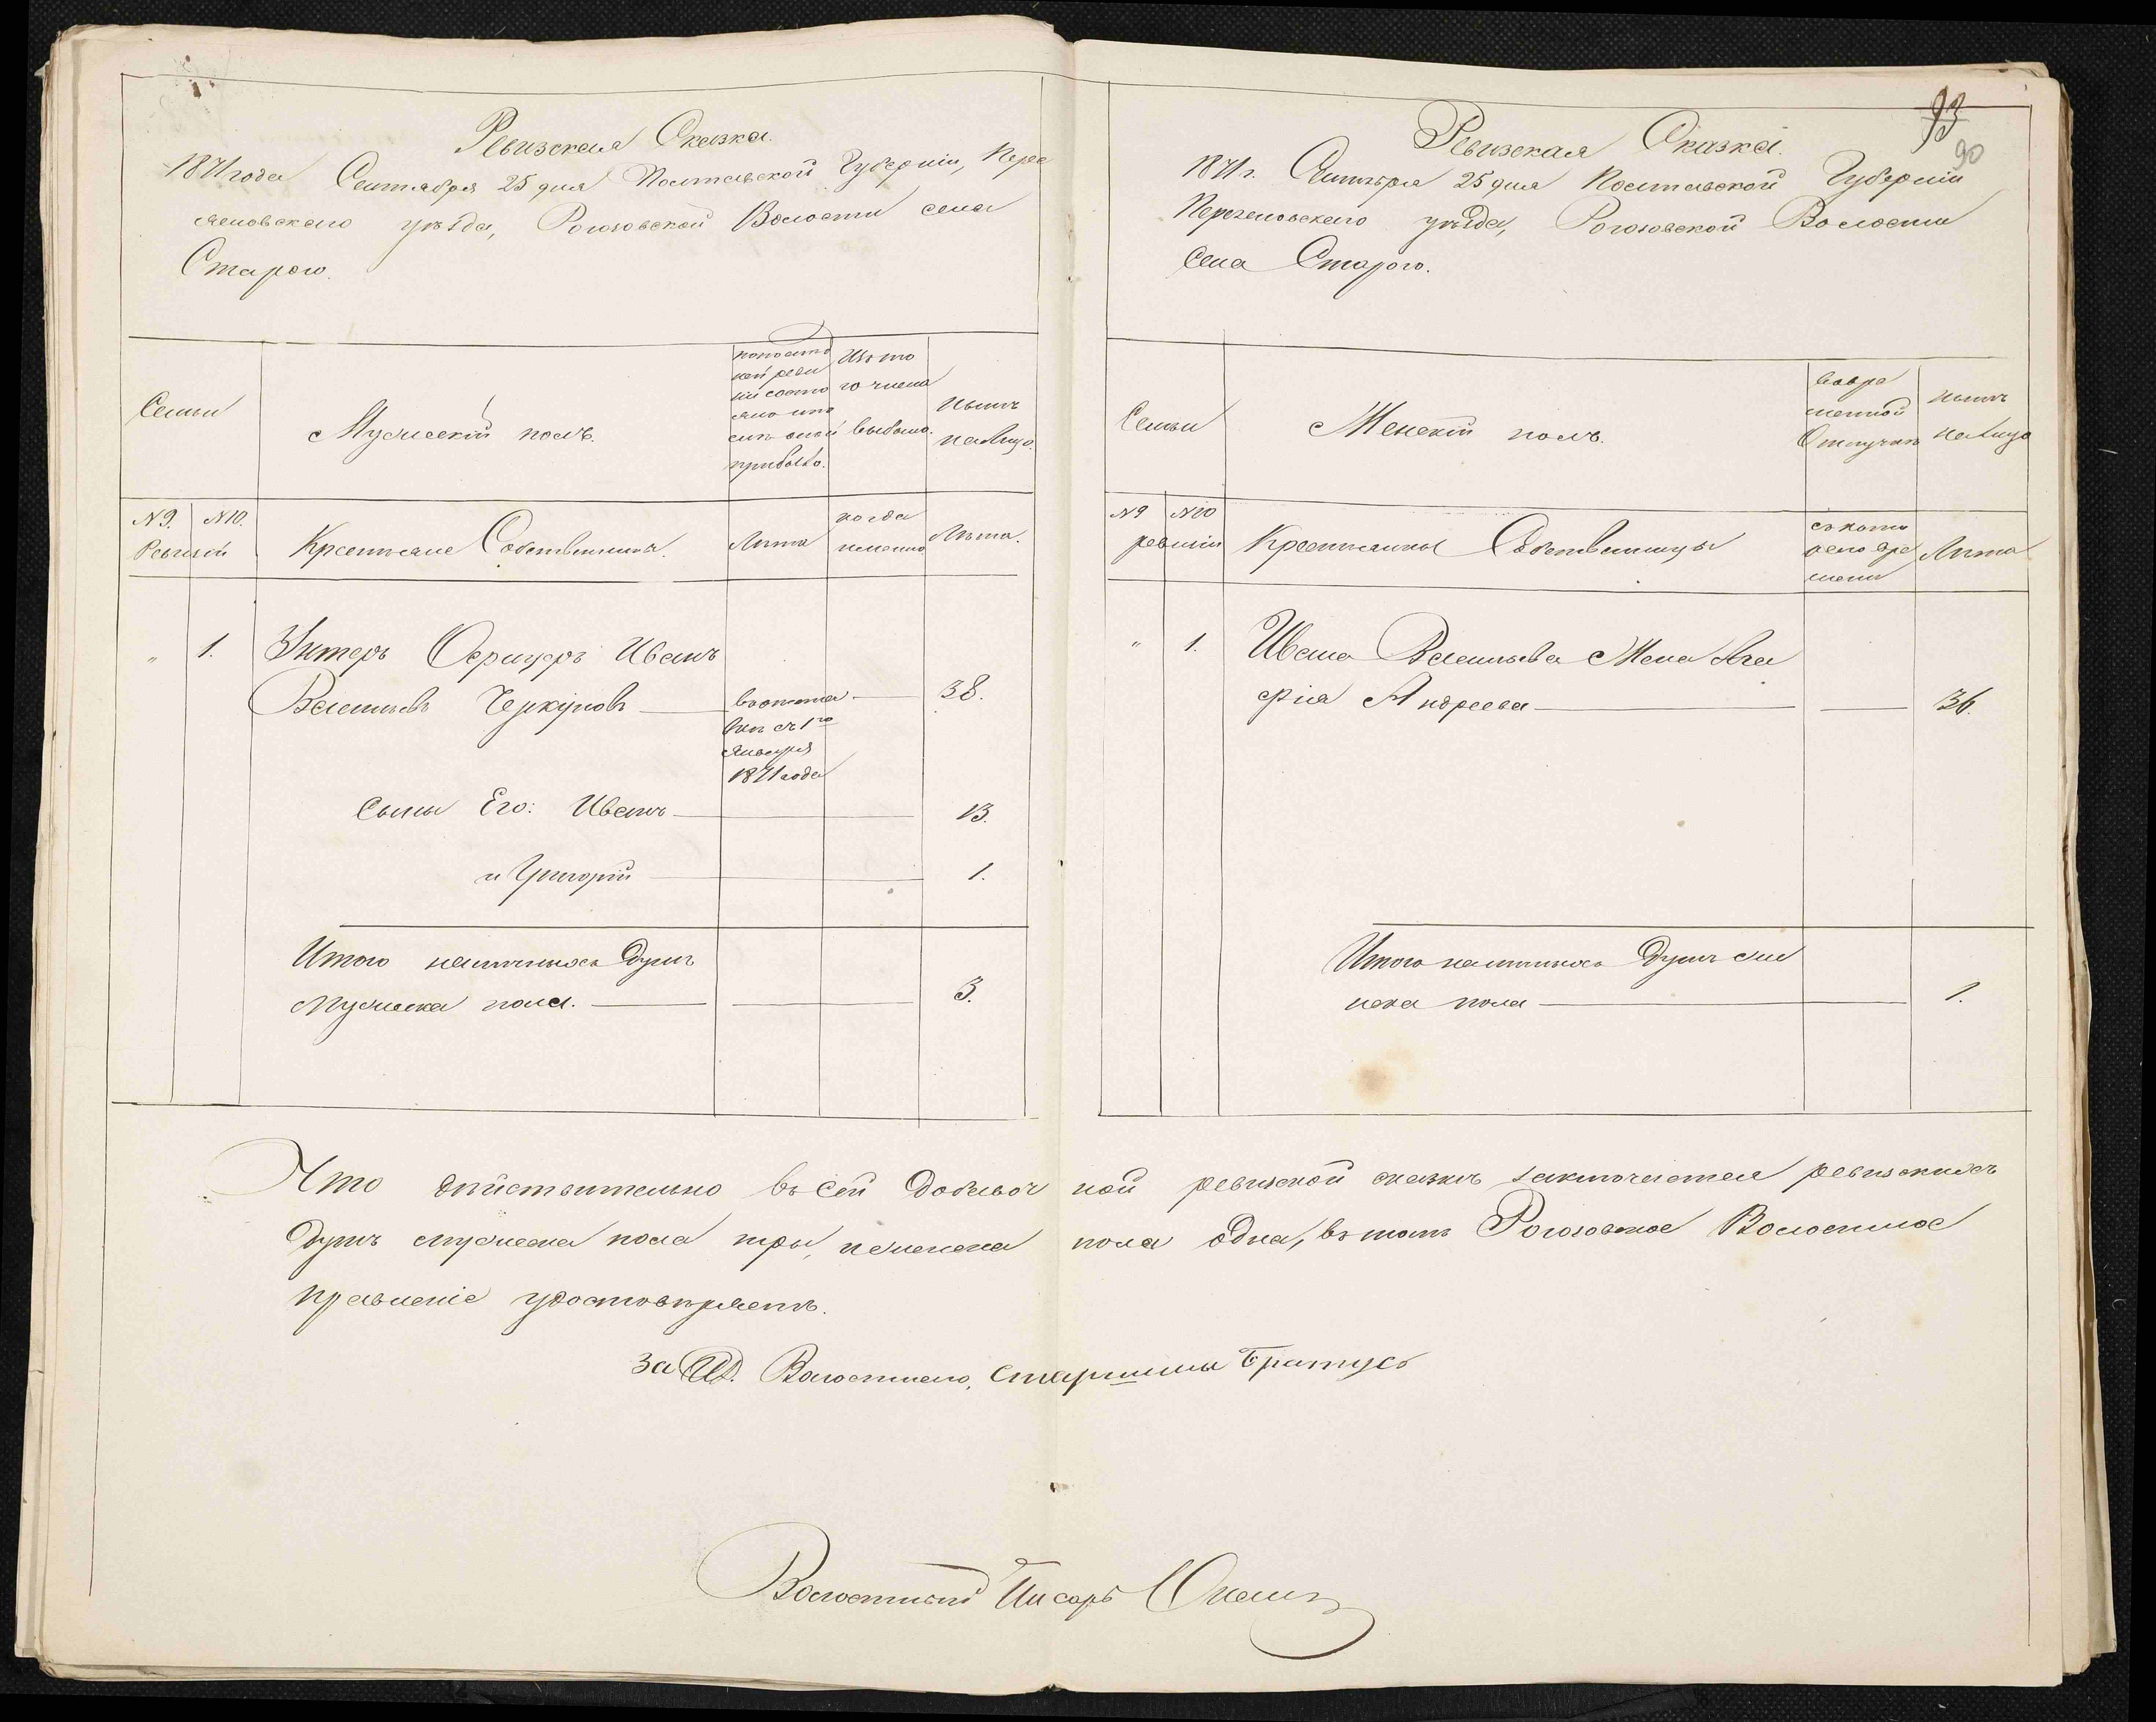 Ревизская Сказка.
1871 года Сентября 25 дня Полтавской Губерніи, Пере
яславскаго уѣзда, Рогозовской Волости села
Стараго.
Семьи
Мужескій полъ.
По послѣд
ней реви
зіи состо
яло или
послѣ оной
прибыло.
Изъ то
го числа
выбыло.
Нынѣ
на лицо.
№ 9. № 10.
Ревизій
Крестьяне Собственники.
Лѣта
когда
именно
Лѣта.
" 1. Унтеръ Офицеръ Иванъ
Васильевъ
въ отста
вкѣ съ 1го
Января
1871 года
38.
Сыны Его: Иванъ 13.
и Григорій 1.
Итого наличныхъ душъ
Мужеска пола. 3.
93
90
Ревизская Сказка.
1871 г. Сентября 25 дня Полтавской Губерніи
Переяславскаго уѣзда, Рогозовской Волости
Села Стараго.
Семьи
Женскій полъ.
Во вре
менной
Отлучкѣ
Нынѣ
на лицо
№ 9 № 10
ревизіи
Крестьянки Собственницы
съ кото
раго вре
мени
Лѣта
" 1. Ивана Васильева Жена Ага
фія Андреева 36.
Итого наличныхъ душъ же
нска пола 1.
Что дѣйствительно въ сей добавочной ревизской сказкѣ заключается ревизскихъ
душъ мужеска пола три, и женска пола одна, въ томъ Рогозовское Волостное
правленіе удостовѣряетъ.
За Волостнаго, Старшины Братусь
Волостный Писарь